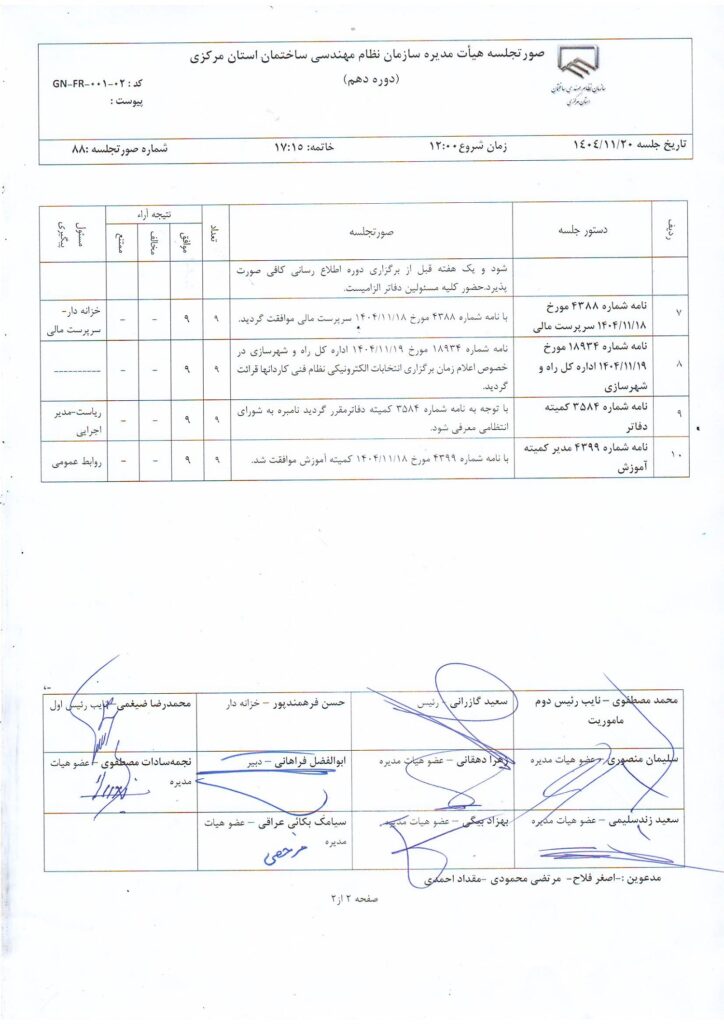 صورتجلسه هیأت مدیره سازمان نظام مهندسی ساختمان استان مرکزی
(دوره دهم)
سازمان نظام مهندسی ساختمان
استان مرکزی
کد : GN-FR-۰۰۱-۰۲
پیوست :
تاریخ جلسه ۱۴۰۴/۱۱/۲۰ زمان شروع۱۲:۰۰ خاتمه: ۱۷:۱۵ شماره صورتجلسه :۸۸
ردیف دستور جلسه صورتجلسه تعداد نتیجه آراء مسئول پیگیری
موافق مخالف ممتنع
شود و یک هفته قبل از برگزاری دوره اطلاع رسانی کافی صورت
پذیرد.حضور کلیه مسئولین دفاتر الزامیست.
۷ نامه شماره ۴۳۸۸ مورخ
۱۴۰۴/۱۱/۱۸ سرپرست مالی
با نامه شماره ۴۳۸۸ مورخ ۱۴۰۴/۱۱/۱۸ سرپرست مالی موافقت گردید.
۹ ۹ - -
خزانه دار-
سرپرست مالی
۸ نامه شماره ۱۸۹۳۴ مورخ
۱۴۰۴/۱۱/۱۹ اداره کل راه و
شهرسازی
نامه شماره ۱۸۹۳۴ مورخ ۱۴۰۴/۱۱/۱۹ اداره کل راه و شهرسازی در
خصوص اعلام زمان برگزاری انتخابات الکترونیکی نظام فنی کاردانها قرائت
گردید.
۹ ۹ - -
----------
۹ نامه شماره ۳۵۸۴ کمیته
دفاتر
با توجه به نامه شماره ۳۵۸۴ کمیته دفاترمقرر گردید نامبره به شورای
انتظامی معرفی شود.
۹ ۹ - -
ریاست-مدیر
اجرایی
۱۰ نامه شماره ۴۳۹۹ مدیر کمیته
آموزش
با نامه شماره ۴۳۹۹ مورخ ۱۴۰۴/۱۱/۱۸ کمیته آموزش موافقت شد.
۹ ۹ - -
روابط عمومی
محمد مصطفوی – نایب رئیس دوم
ماموریت
سعید گازرانی – رئیس
حسن فرهمندپور – خزانه دار
محمدرضا ضیغمی – نایب رئیس اول
سلیمان منصوری – عضو هیات مدیره
زهرا دهقانی – عضو هیات مدیره
ابوالفضل فراهانی – دبیر
نجمه‌سادات مصطفوی – عضو هیات
مدیره
سعید زندسلیمی – عضو هیات مدیره
بهزاد بیگی – عضو هیات مدیره
سیامک بکائی عراقی – عضو هیات
مدیره
مرخصی
مدعوین :-اصغر فلاح- مرتضی محمودی -مقداد احمدی
صفحه ۲ از۲